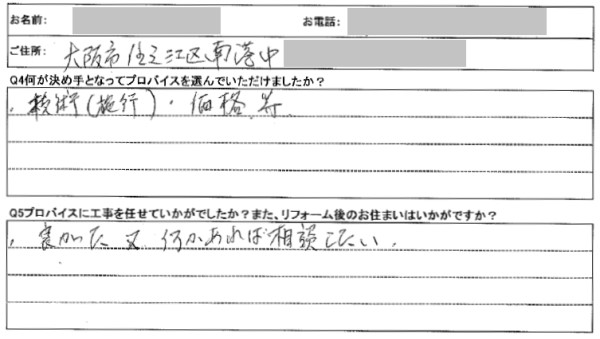 お名前: お電話:
ご住所: 大阪市住之江区南港中
Q4何が決め手となってプロバイスを選んでいただけましたか?
・技術(施行)・価格 等
Q5プロバイスに工事を任せていかがでしたか?また、リフォーム後のお住まいはいかがですか?
・良かった 又 何かあれば相談したい.